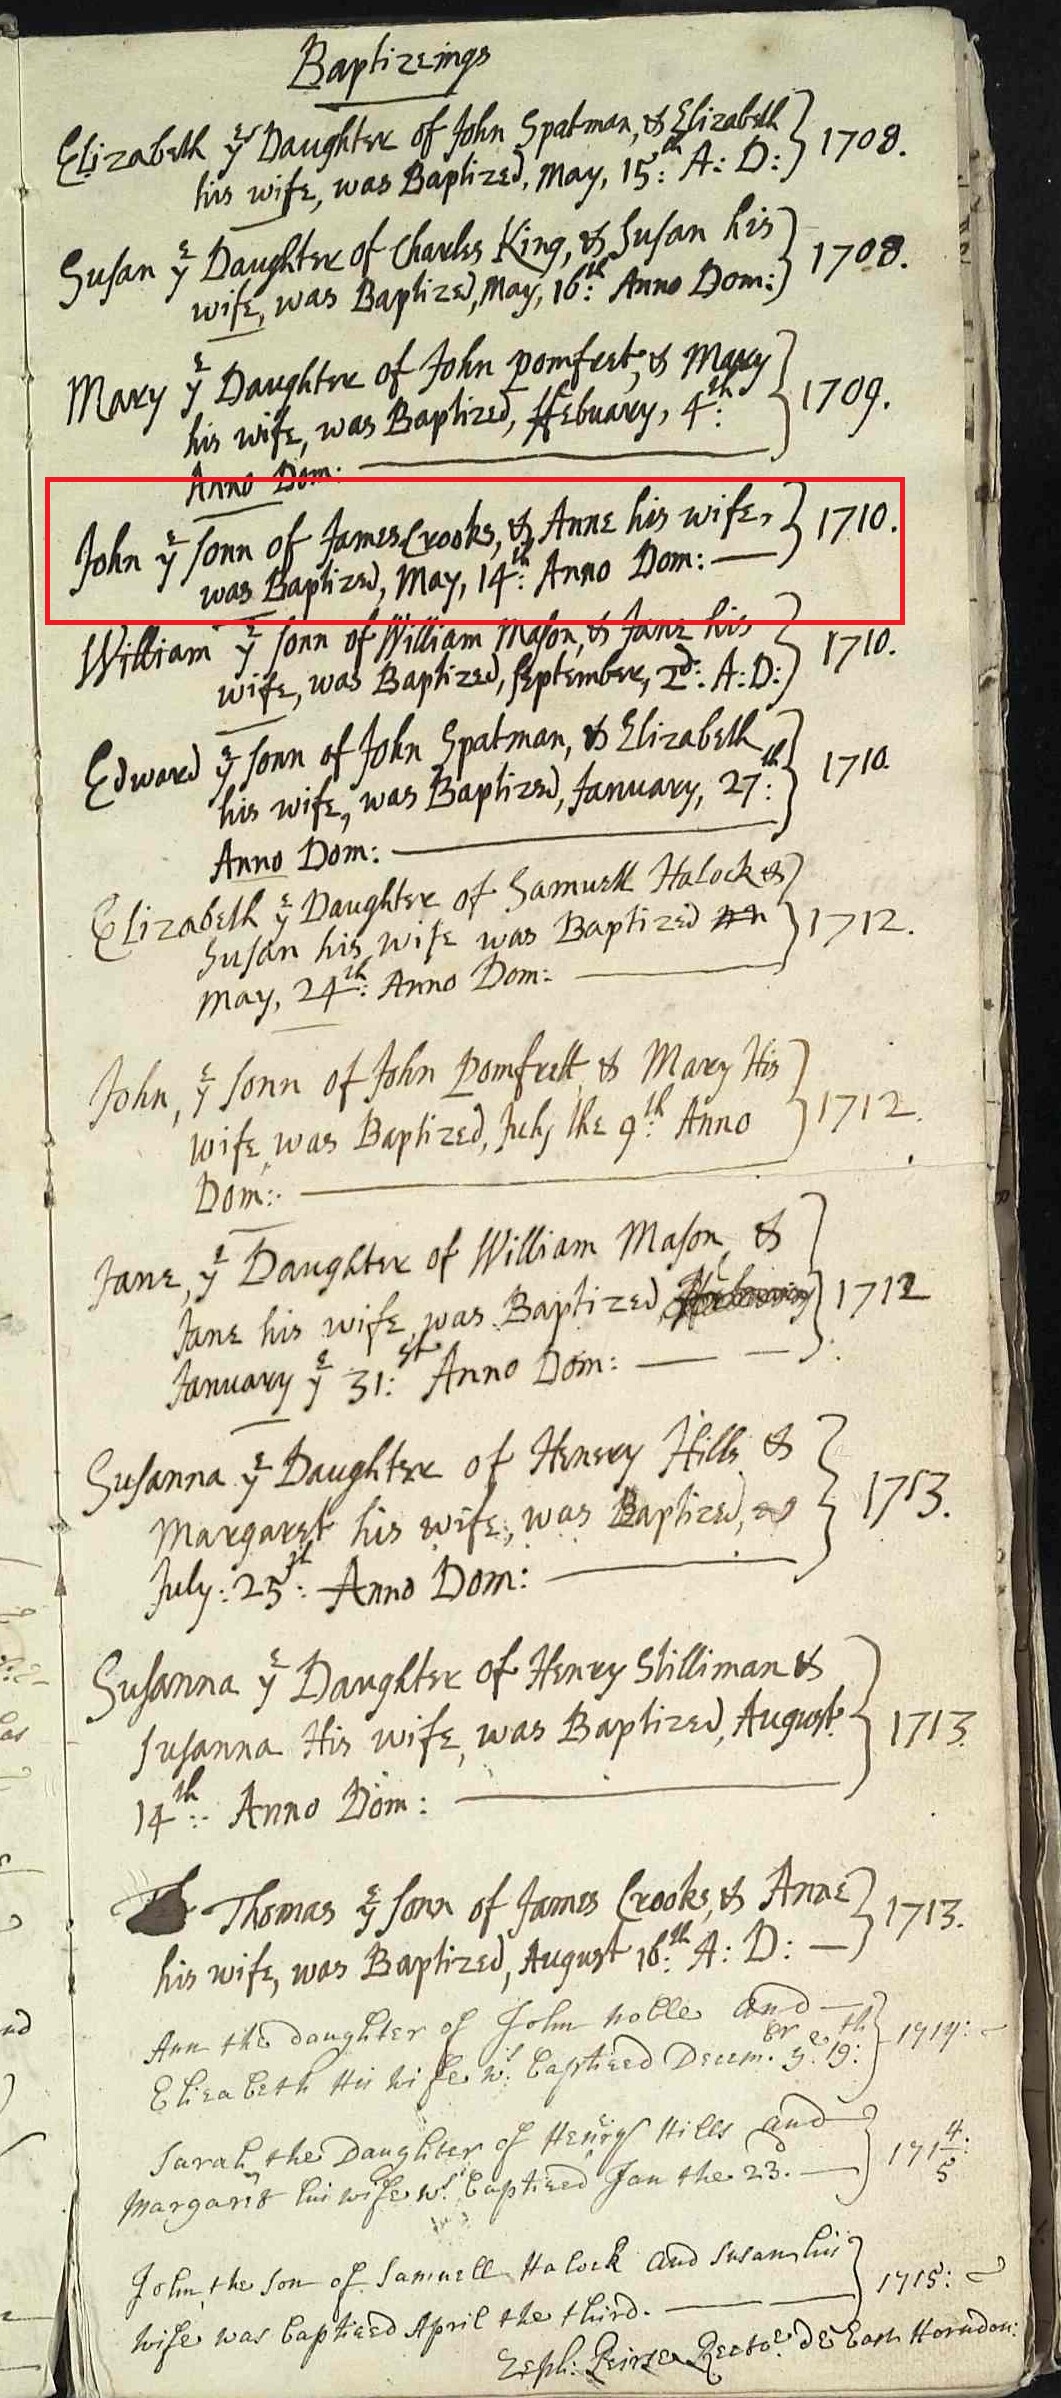 Baptizeings
Elizabeth yᵉ Daughter of John Spatman, & Elizabeth
his wife, was Baptized, May, 15:ᵗʰ A: D: } 1708.
Susan yᵉ Daughter of Charles King, & Susan his
wife, was Baptized, May, 16:ᵗʰ Anno Dom: } 1708.
Mary yᵉ Daughter of John pomfret, & Mary
his wife, was Baptized, ffebuary, 4:ᵗʰ } 1709.
Anno Dom:
John yᵉ sonn of James Crooks, & Anne his wife,
was Baptized, May, 14:ᵗʰ Anno Dom: } 1710.
William yᵉ sonn of William Mason, & Jane his
wife, was Baptized, September, 2ᵈ: A: D: } 1710.
Edward yᵉ sonn of John Spatman, & Elizabeth
his wife, was Baptized, January, 27:ᵗʰ } 1710.
Anno Dom:
Elizabeth yᵉ Daughter of Samuell Halock &
Susan his wife was Baptized } 1712.
May, 24:ᵗʰ Anno Dom:
John, yᵉ sonn of John Pomfrett, & Mary His
wife, was Baptized, July the 9:ᵗʰ Anno } 1712.
Dom:
Jane, yᵉ Daughter of William Mason, &
Jane his wife, was Baptized, } 1712
January yᵉ 31:ˢᵗ Anno Dom:
Susanna yᵉ Daughter of Henery Hills &
Margaret his wife, was Baptized, } 1713.
July: 25:ᵗʰ Anno Dom:
Susanna yᵉ Daughter of Henry Stilliman &
Susanna His wife, was Baptized, August } 1713.
14:ᵗʰ Anno Dom:
Thomas yᵉ sonn of James Crooks, & Anne
his wife, was Baptized, August 16:ᵗʰ A: D: } 1713.
Ann the daughter of John Noble and
Elizabeth His wife wˢ: baptized Decemᵇʳ. yᵉ 19:ᵗʰ } 1714:
Sarah the Daughter of Henry Hills and
Margarit his wife wˢ: baptized Jan the 23. } 171⅘:
John the Son of Samuell Halock and Susan his
wife was baptized April the third. } 1715:
Zeph: Peirse Rector de East Horndon: